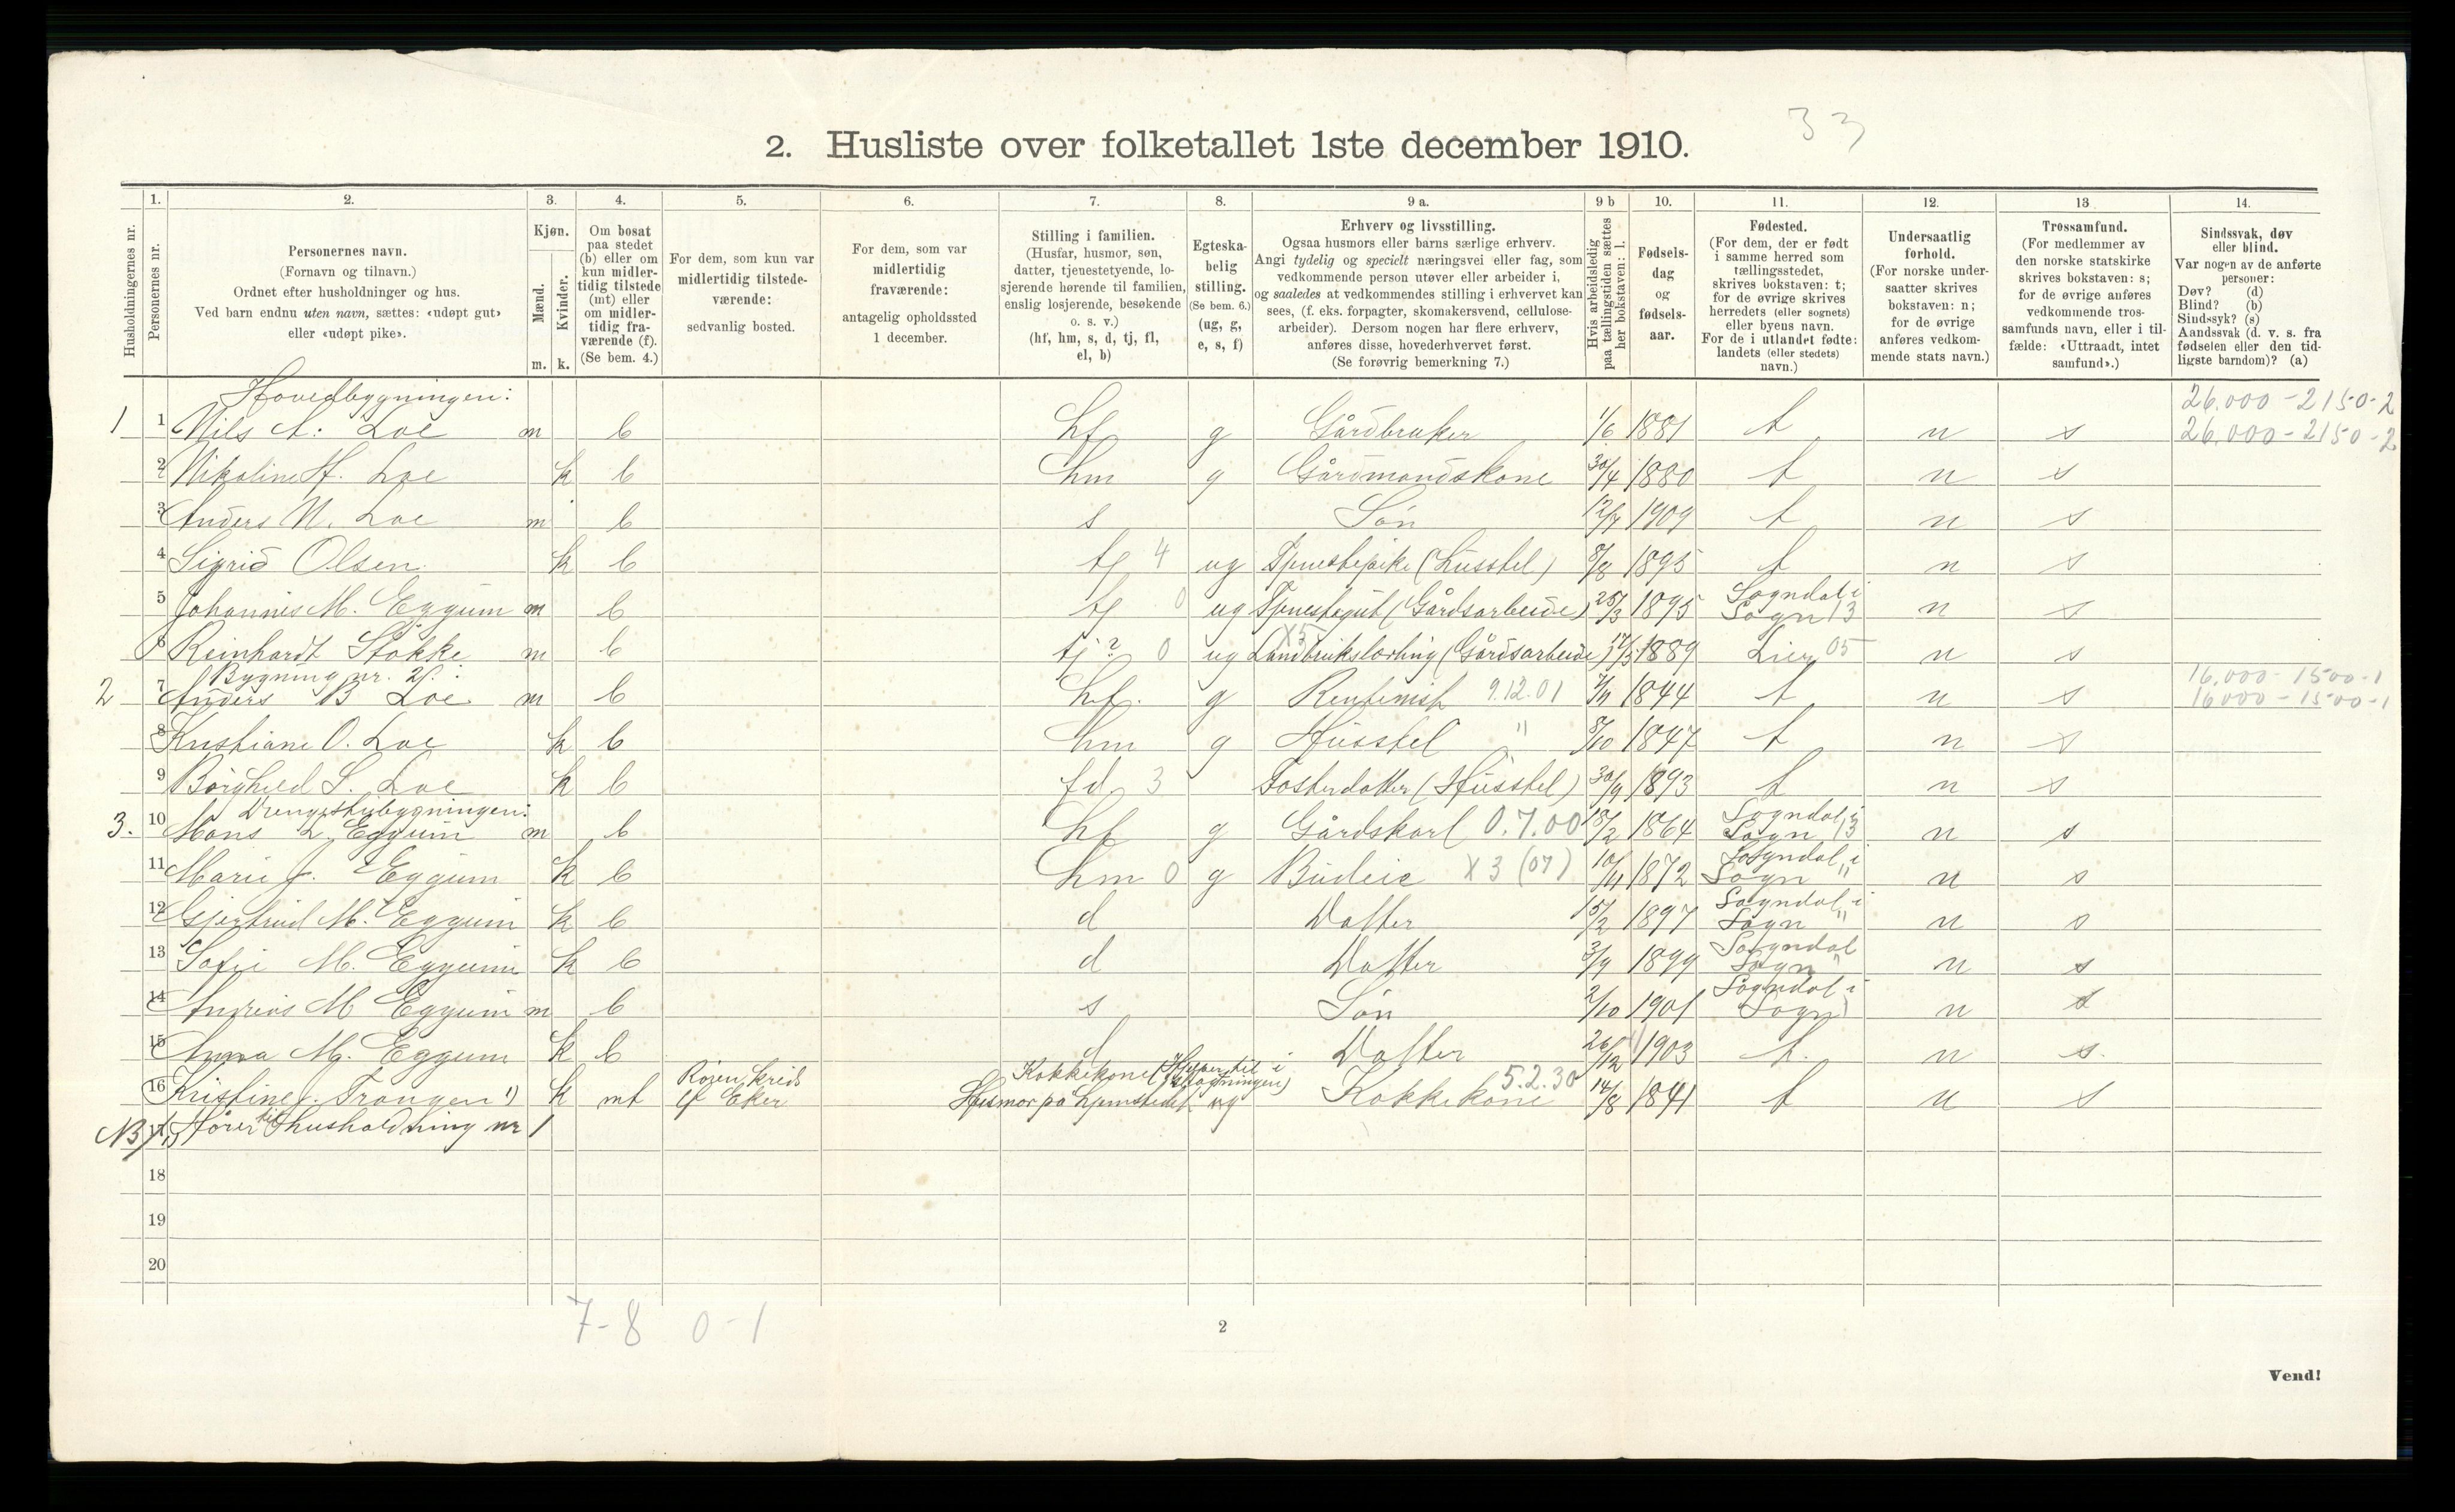 33
2. Husliste over folketallet 1ste december 1910.
Husholdningernes nr.
1.
Personernes nr.
2.
Personernes navn.
(Fornavn og tilnavn.)
Ordnet efter husholdninger og hus.
Ved barn endnu uten navn, sættes: «udøpt gut»
eller «udøpt pike».
3.
Kjøn.
Mænd.
m.
Kvinder.
k.
4.
Om bosat
paa stedet
(b) eller om
kun midler-
tidig tilstede
(mt) eller
om midler-
tidig fra-
værende (f).
(Se bem. 4.)
5.
For dem, som kun var
midlertidig tilstede-
værende:
sedvanlig bosted.
6.
For dem, som var
midlertidig
fraværende:
antagelig opholdssted
1 december.
7.
Stilling i familien.
(Husfar, husmor, søn,
datter, tjenestetyende, lo-
sjerende hørende til familien,
enslig losjerende, besøkende
o. s. v.)
(hf, hm, s, d, tj, fl,
el, b)
8.
Egteska-
belig
stilling.
(Se bem. 6.)
(ug, g,
e, s, f)
9 a.
Erhverv og livsstilling.
Ogsaa husmors eller barns særlige erhverv.
Angi tydelig og specielt næringsvei eller fag, som
vedkommende person utøver eller arbeider i,
og saaledes at vedkommendes stilling i erhvervet kan
sees, (f. eks. forpagter, skomakersvend, cellulose-
arbeider). Dersom nogen har flere erhverv,
anføres disse, hovederhvervet først.
(Se forøvrig bemerkning 7.)
9 b
Hvis arbeidsledig
paa tællingstiden sættes
her bokstaven: l.
10.
Fødsels-
dag
og
fødsels-
aar.
11.
Fødested.
(For dem, der er født
i samme herred som
tællingsstedet,
skrives bokstaven: t;
for de øvrige skrives
herredets (eller sognets)
eller byens navn.
For de i utlandet fødte:
landets (eller stedets)
navn.)
12.
Undersaatlig
forhold.
(For norske under-
saatter skrives
bokstaven: n;
for de øvrige
anføres vedkom-
mende stats navn.)
13
Trossamfund.
(For medlemmer av
den norske statskirke
skrives bokstaven: s;
for de øvrige anføres
vedkommende tros-
samfunds navn, eller i til-
fælde: «Uttraadt, intet
samfund».)
14.
Sindssvak, døv
eller blind.
Var nogen av de anførte
personer:
Døv? (d)
Blind? (b)
Sindssyk? (s)
Aandssvak (d. v. s. fra
fødselen eller den tid-
ligste barndom)? (a)
Hovedbygningen: 26.000-2150-2
1 1 Nils A. Loe m b hf g Gårdbruker 1/6 1881 t n s 26.000-2150-2
2 Nikoline H. Loe k b hm g Gårdmandskone 30/4 1880 t n s
3 Anders N. Loe m b s Søn 12/7 1909 t n s
4 Sigrid Olsen k b tj 4 ug Tjenestepike (husstel) 8/8 1895 t n s
5 Johannes M. Eggum m b tj 0 ug Tjenestegut (Gårdsarbeide) 25/3 1895 Sogndal i Sogn 13 n s
6 Reinhardt Stokke m b tj ? 0 ug Landbrukslærling (Gårdsarbeide) X5 17/3 1889 Lier 05 n s
Bygning nr. 2: 16.000-1500-1
2 7 Anders B Loe m b hf. g Rentenist 9.12.01 7/11 1844 t n s 16000-1500-1
8 Kristiane O. Loe k b hm g Husstel " 8/10 1847 t n s
9 Borghild S. Loe k b fd 3 Fosterdatter (Husstel) 30/9 1893 t n s
Drengestubygningen:
3. 10 Mons L. Eggum m b hf g Gårdskarl 0.7.00 18/2 1864 Sogndal i Sogn 13 n s
11 Marie J. Eggum k b hm 0 g Budeie X 3 (07) 10/11 1872 Sogndal i Sogn " n s
12 Gjertrud M. Eggum k b d Datter 15/2 1897 Sogndal i Sogn " n s
13 Sofie M. Eggum k b d Datter 3/9 1899 Sogndal Sogn " n s
14 Andreas M Eggum m b s Søn 2/10 1901 Sogndal i Sogn n s
15 Anna M. Eggum k b d Datter 26/12 1903 t. n s.
16 Kristine J. Trongen 1) k mt Eker Kokkekone Husmor på hjemstedet ug Kokkekone 5.2.30 14/8 1841 t n s
NB 17 1) Hører til husholdning nr 1
18
19
20
7-8 0-1
2
Vend!